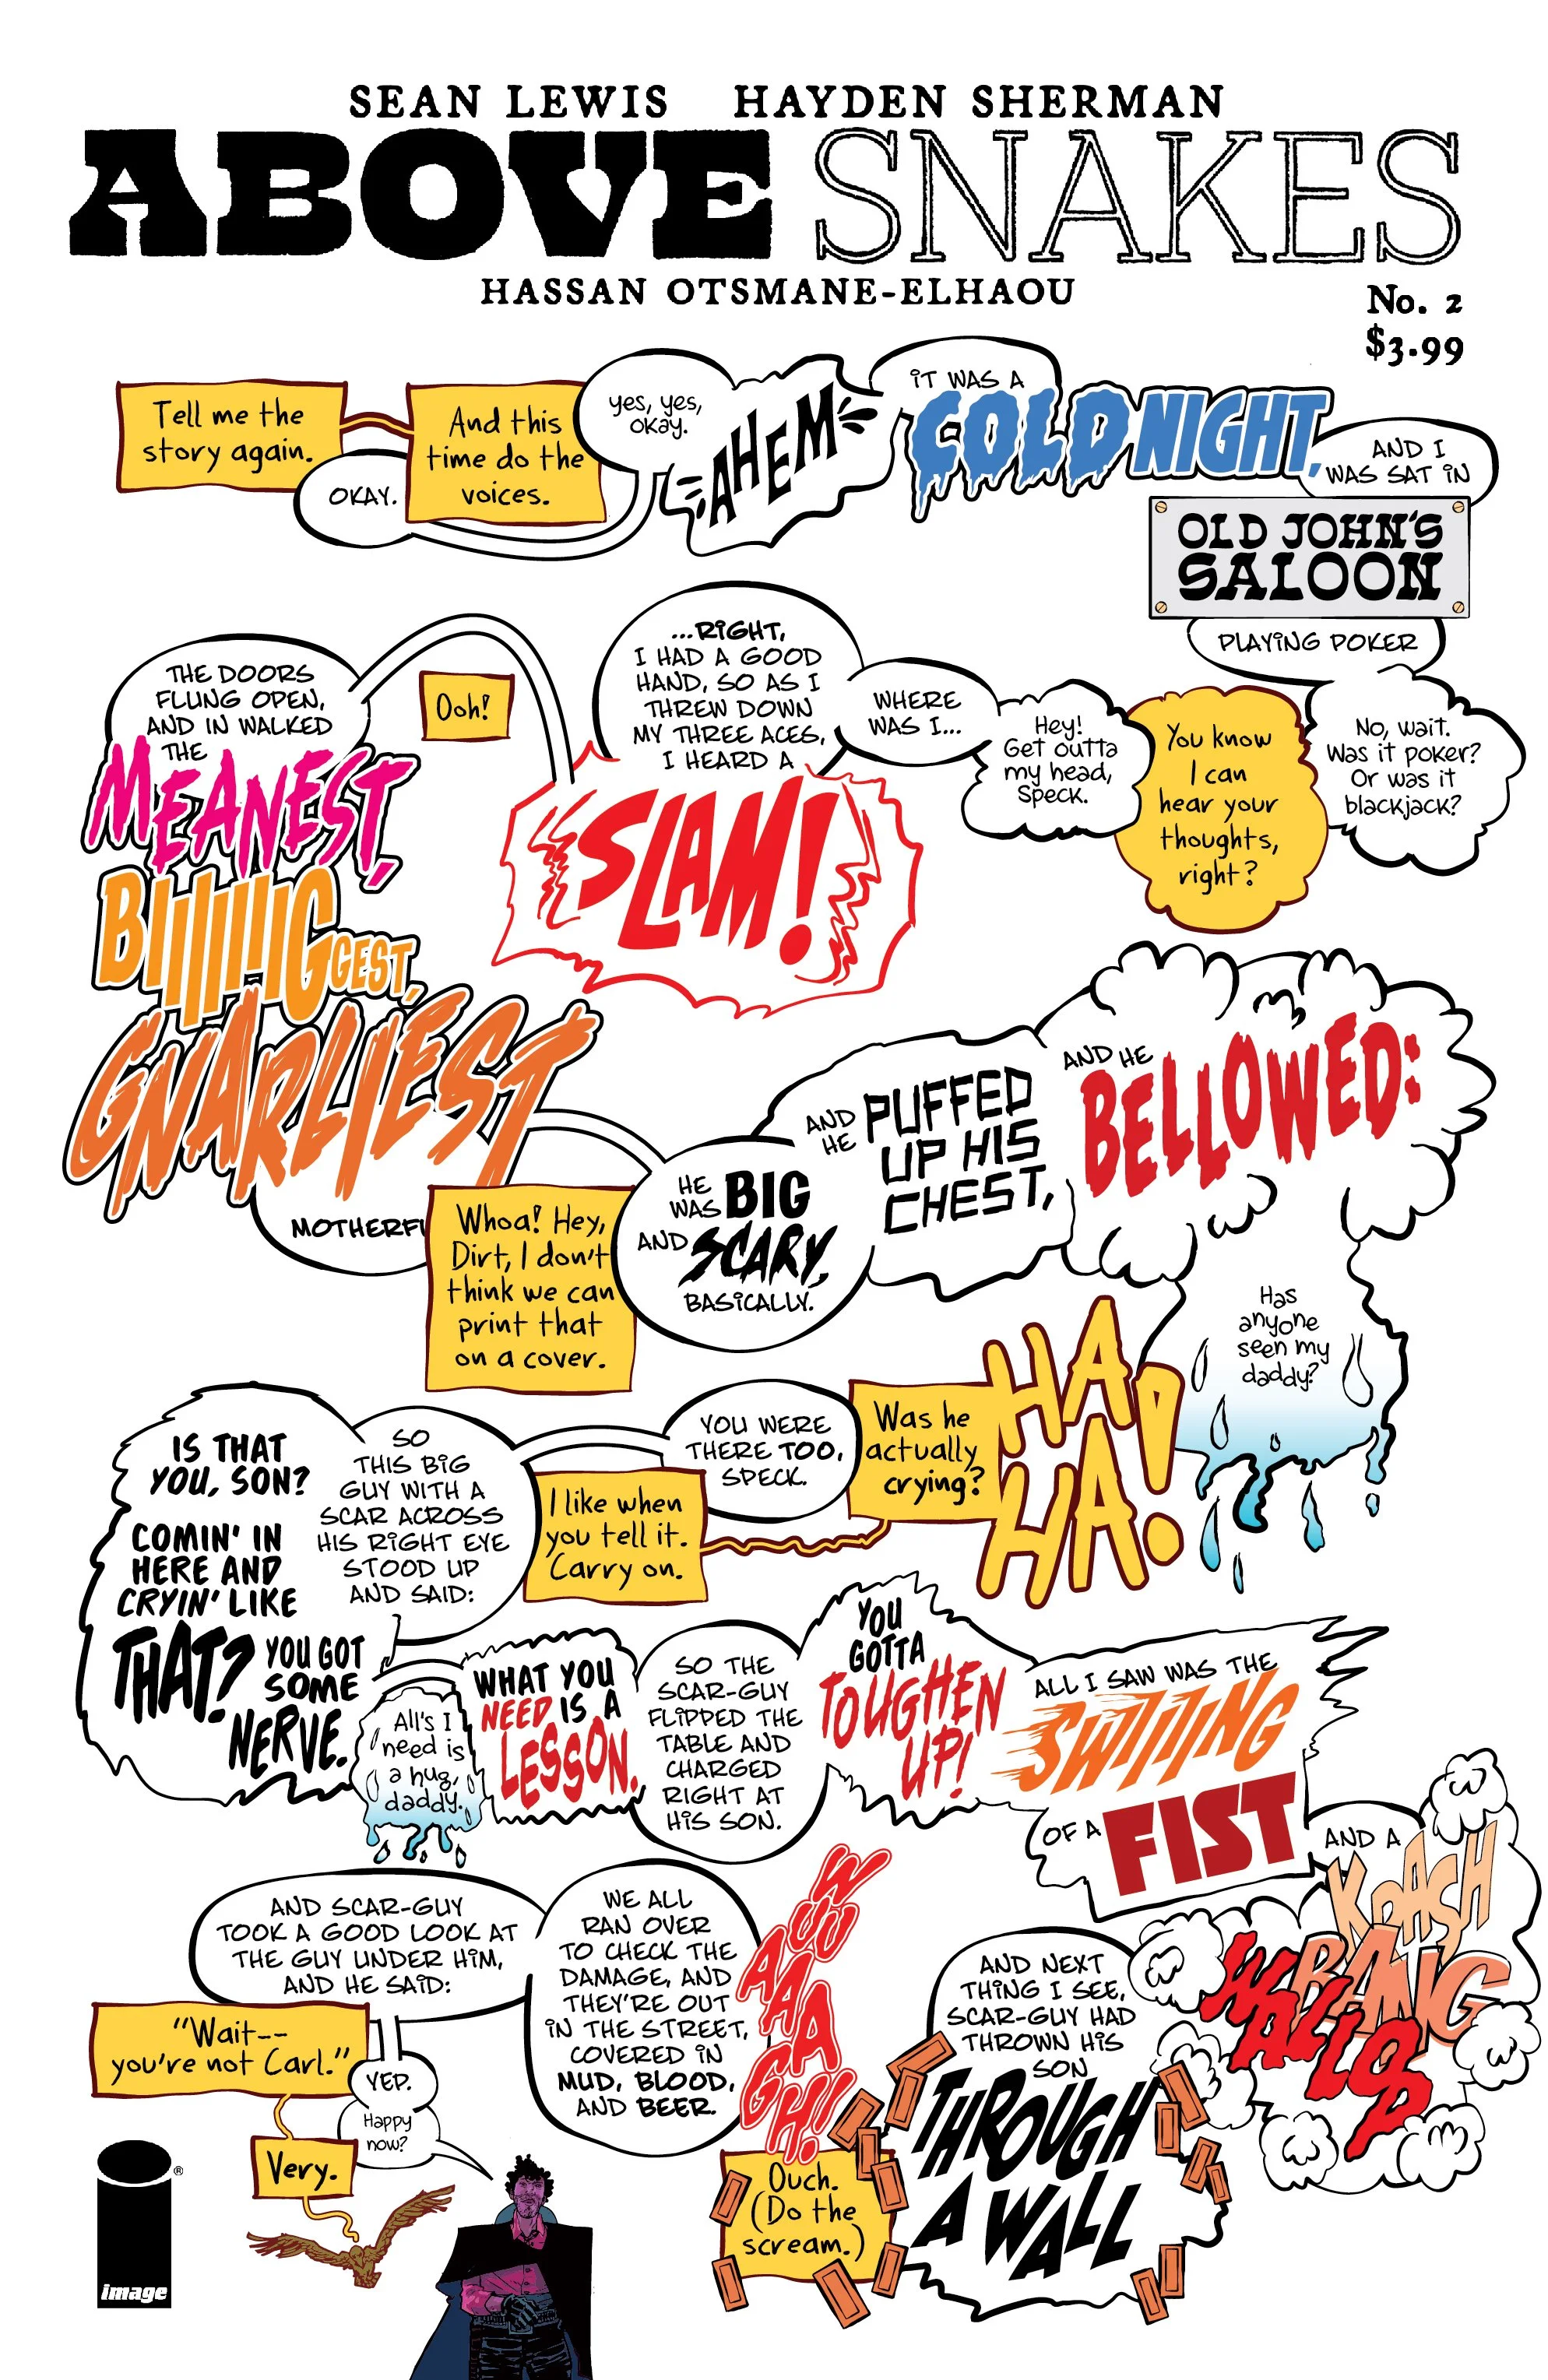 SEAN LEWIS HAYDEN SHERMAN
ABOVE SNAKES
HASSAN OTSMANE-ELHAOU
No. 2
$3.99
Tell me the
story again.
OKAY.
And this
time do the
voices.
yes, yes,
okay.
AHEM
IT WAS A
COLD NIGHT,
AND I
WAS SAT IN
OLD JOHN'S
SALOON
PLAYING POKER
No, wait.
Was it poker?
Or was it
blackjack?
You know
I can
hear your
thoughts,
right?
Hey!
Get outta
my head,
Speck.
WHERE
WAS I...
...RIGHT,
I HAD A GOOD
HAND, SO AS I
THREW DOWN
MY THREE ACES,
I HEARD A
SLAM!
Ooh!
THE DOORS
FLUNG OPEN,
AND IN WALKED
THE
MEANEST,
BIIIIIIGGEST,
GNARLIEST
MOTHERFU
Whoa! Hey,
Dirt, I don't
think we can
print that
on a cover.
HE
WAS BIG
AND SCARY,
BASICALLY.
AND
HE PUFFED
UP HIS
CHEST,
AND HE
BELLOWED:
Has
anyone
seen my
daddy?
HA
HA!
HA!
Was he
actually
crying?
YOU WERE
THERE TOO,
SPECK.
I like when
you tell it.
Carry on.
SO
THIS BIG
GUY WITH A
SCAR ACROSS
HIS RIGHT EYE
STOOD UP
AND SAID:
IS THAT
YOU, SON?
COMIN' IN
HERE AND
CRYIN' LIKE
THAT? YOU GOT
SOME
NERVE.
All's I
need is
a hug,
daddy.
WHAT YOU
NEED IS A
LESSON.
SO THE
SCAR-GUY
FLIPPED THE
TABLE AND
CHARGED
RIGHT AT
HIS SON.
YOU
GOTTA
TOUGHEN
UP!
ALL I SAW WAS THE
SWIIIING
OF A FIST
AND A
KRASH
BANG
WALLOP
AND NEXT
THING I SEE,
SCAR-GUY HAD
THROWN HIS
SON
THROUGH
A WALL
Ouch.
(Do the
scream.)
WUUUAAAAGH!
WE ALL
RAN OVER
TO CHECK THE
DAMAGE, AND
THEY'RE OUT
IN THE STREET,
COVERED IN
MUD, BLOOD,
AND BEER.
AND SCAR-GUY
TOOK A GOOD LOOK AT
THE GUY UNDER HIM,
AND HE SAID:
"Wait--
you're not Carl."
YEP.
Happy
now?
Very.
image
®